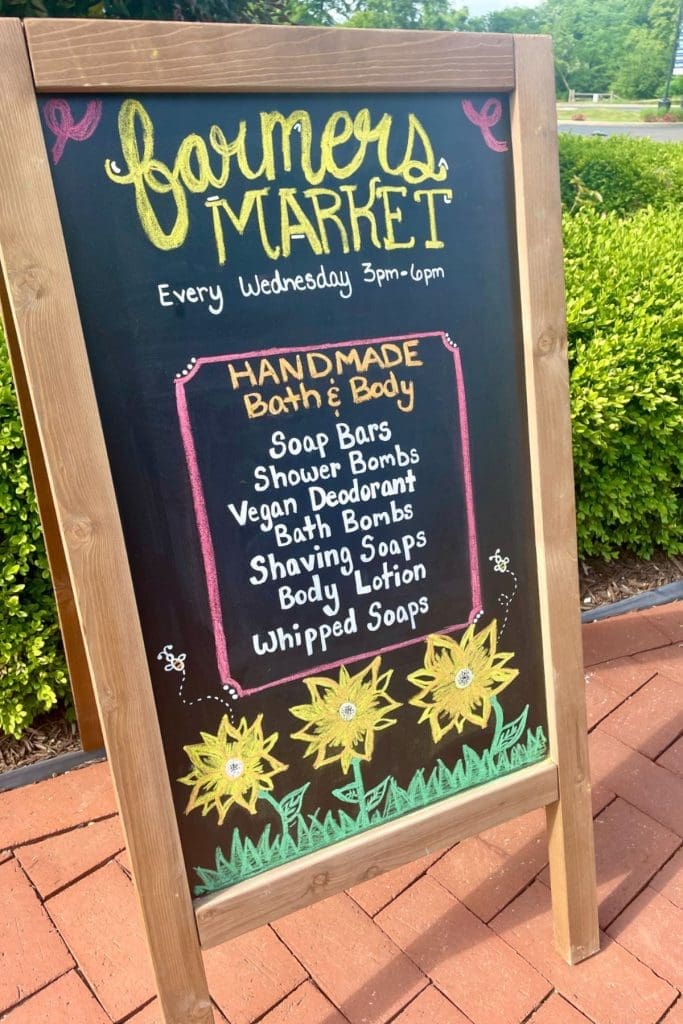 farmers
MARKET
Every Wednesday 3pm-6pm
HANDMADE
Bath & Body
Soap Bars
Shower Bombs
Vegan Deodorant
Bath Bombs
Shaving Soaps
Body Lotion
Whipped Soaps